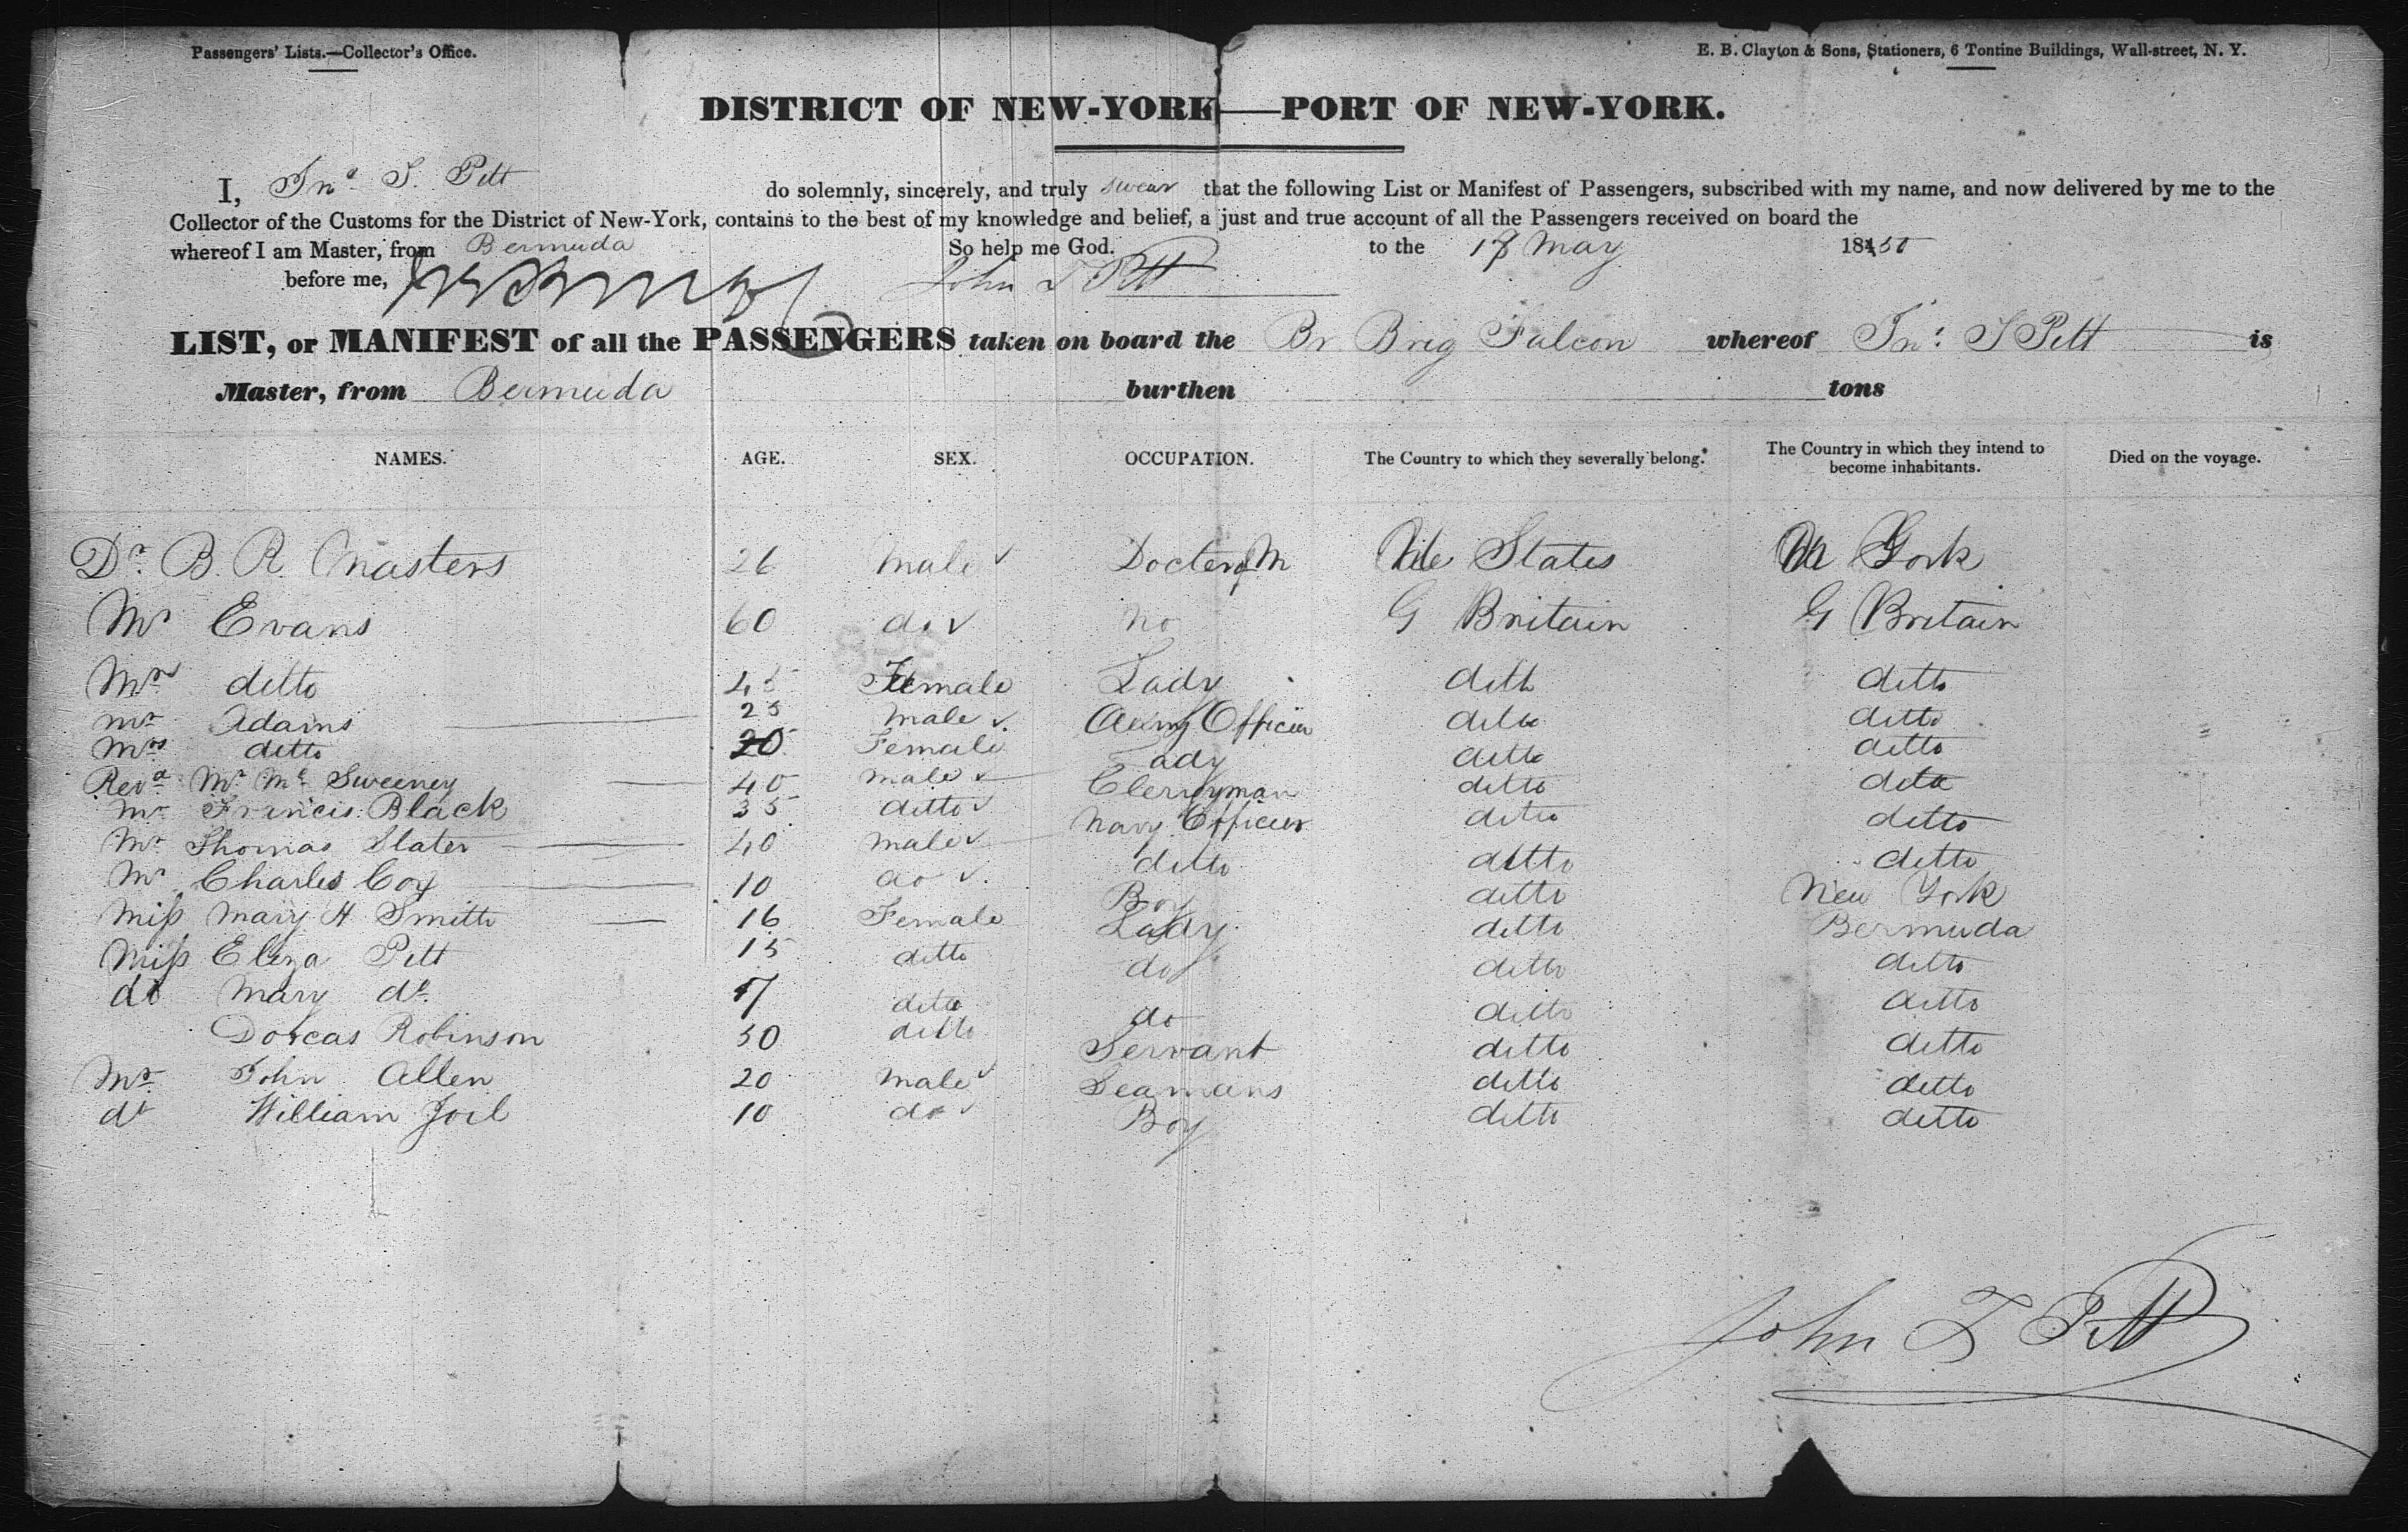 Passengers' Lists.—Collector's Office.
E. B. Clayton & Sons, Stationers, 6 Tontine Buildings, Wall-street, N. Y.
DISTRICT OF NEW-YORK—PORT OF NEW-YORK.
I, Jno. S. Pitt do solemnly, sincerely, and truly swear that the following List or Manifest of Passengers, subscribed with my name, and now delivered by me to the
Collector of the Customs for the District of New-York, contains to the best of my knowledge and belief, a just and true account of all the Passengers received on board the
whereof I am Master, from Bermuda So help me God. to the 18 May 1850
before me, John T Pitt
LIST, or MANIFEST of all the PASSENGERS taken on board the Br Brig Falcon whereof Jno: S Pitt is
Master, from Bermuda burthen tons
NAMES. AGE. SEX. OCCUPATION. The Country to which they severally belong. The Country in which they intend to become inhabitants. Died on the voyage.
Dr. B. R. Masters 26 male Docter of M States York
Mr Evans 60 do no G Britain G Britain
Mrs ditto 45 Female Lady ditto ditto
Mr Adams 25 male Army Officer ditto ditto
Mrs ditto 20 Female Lady ditto ditto
Revd Mr Mc Sweeney 40 male Clergyman ditto ditto
Mr Francis Black 35 ditto Navy Officer ditto ditto
Mr Thomas Slater 40 male ditto ditto ditto
Mr Charles Cox 10 do Boy ditto New York
Miss Mary H Smith 16 Female Lady ditto Bermuda
Miss Eliza Pitt 15 ditto do ditto ditto
do Mary do 17 ditto do ditto ditto
Dorcas Robinson 50 ditto Servant ditto ditto
Mr John Allen 20 male Seamans ditto ditto
do William Joel 10 do Boy ditto ditto
John T Pitt